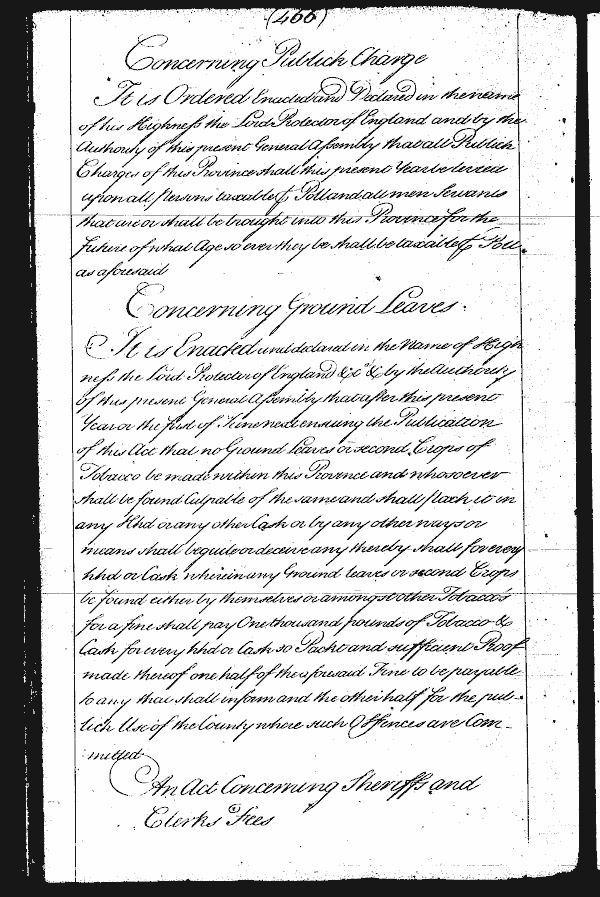 (466)
Concerning Publick Charge
It is Ordered Enacted and Declared in the name
of his Highness the Lord Protector of England and by the
Authority of this present General Assembly that all Publick
Charges of this Province shall this present Year be levied
upon all persons taxable & Poll and all men Servants
that are or shall be brought into this Province for the
future of what Age so ever they be shall be taxable Poll
as aforesaid
Concerning Ground Leaves.
It is Enacted and declared in the Name of High
ness the Lord Protector of England &ca & by the Authority
of this present General Assembly that after this present
Year or the first of June next ensuing the Publication
of this Act that no Ground Leaves or second Crops of
Tobacco be made within this Province and whosoever
shall be found Culpable of the same and shall pack it in
any Hhd or any other Cask or by any other ways or
means shall beguile or deceive any thereby shall for every
hhd or Cask wherein any Ground leaves or second Crops
be found either by themselves or amongst other Tobacco's
for a fine shall pay One thousand pounds of Tobacco &
Cask for every hhd or Cask so Packt and sufficient Proof
made thereof one half of the aforesaid Fine to be payable
to any that shall inform and the other half for the pub-
lick Use of the County where such Offences are Com-
mitted
An Act Concerning Sheriffs and
Clerks Fees